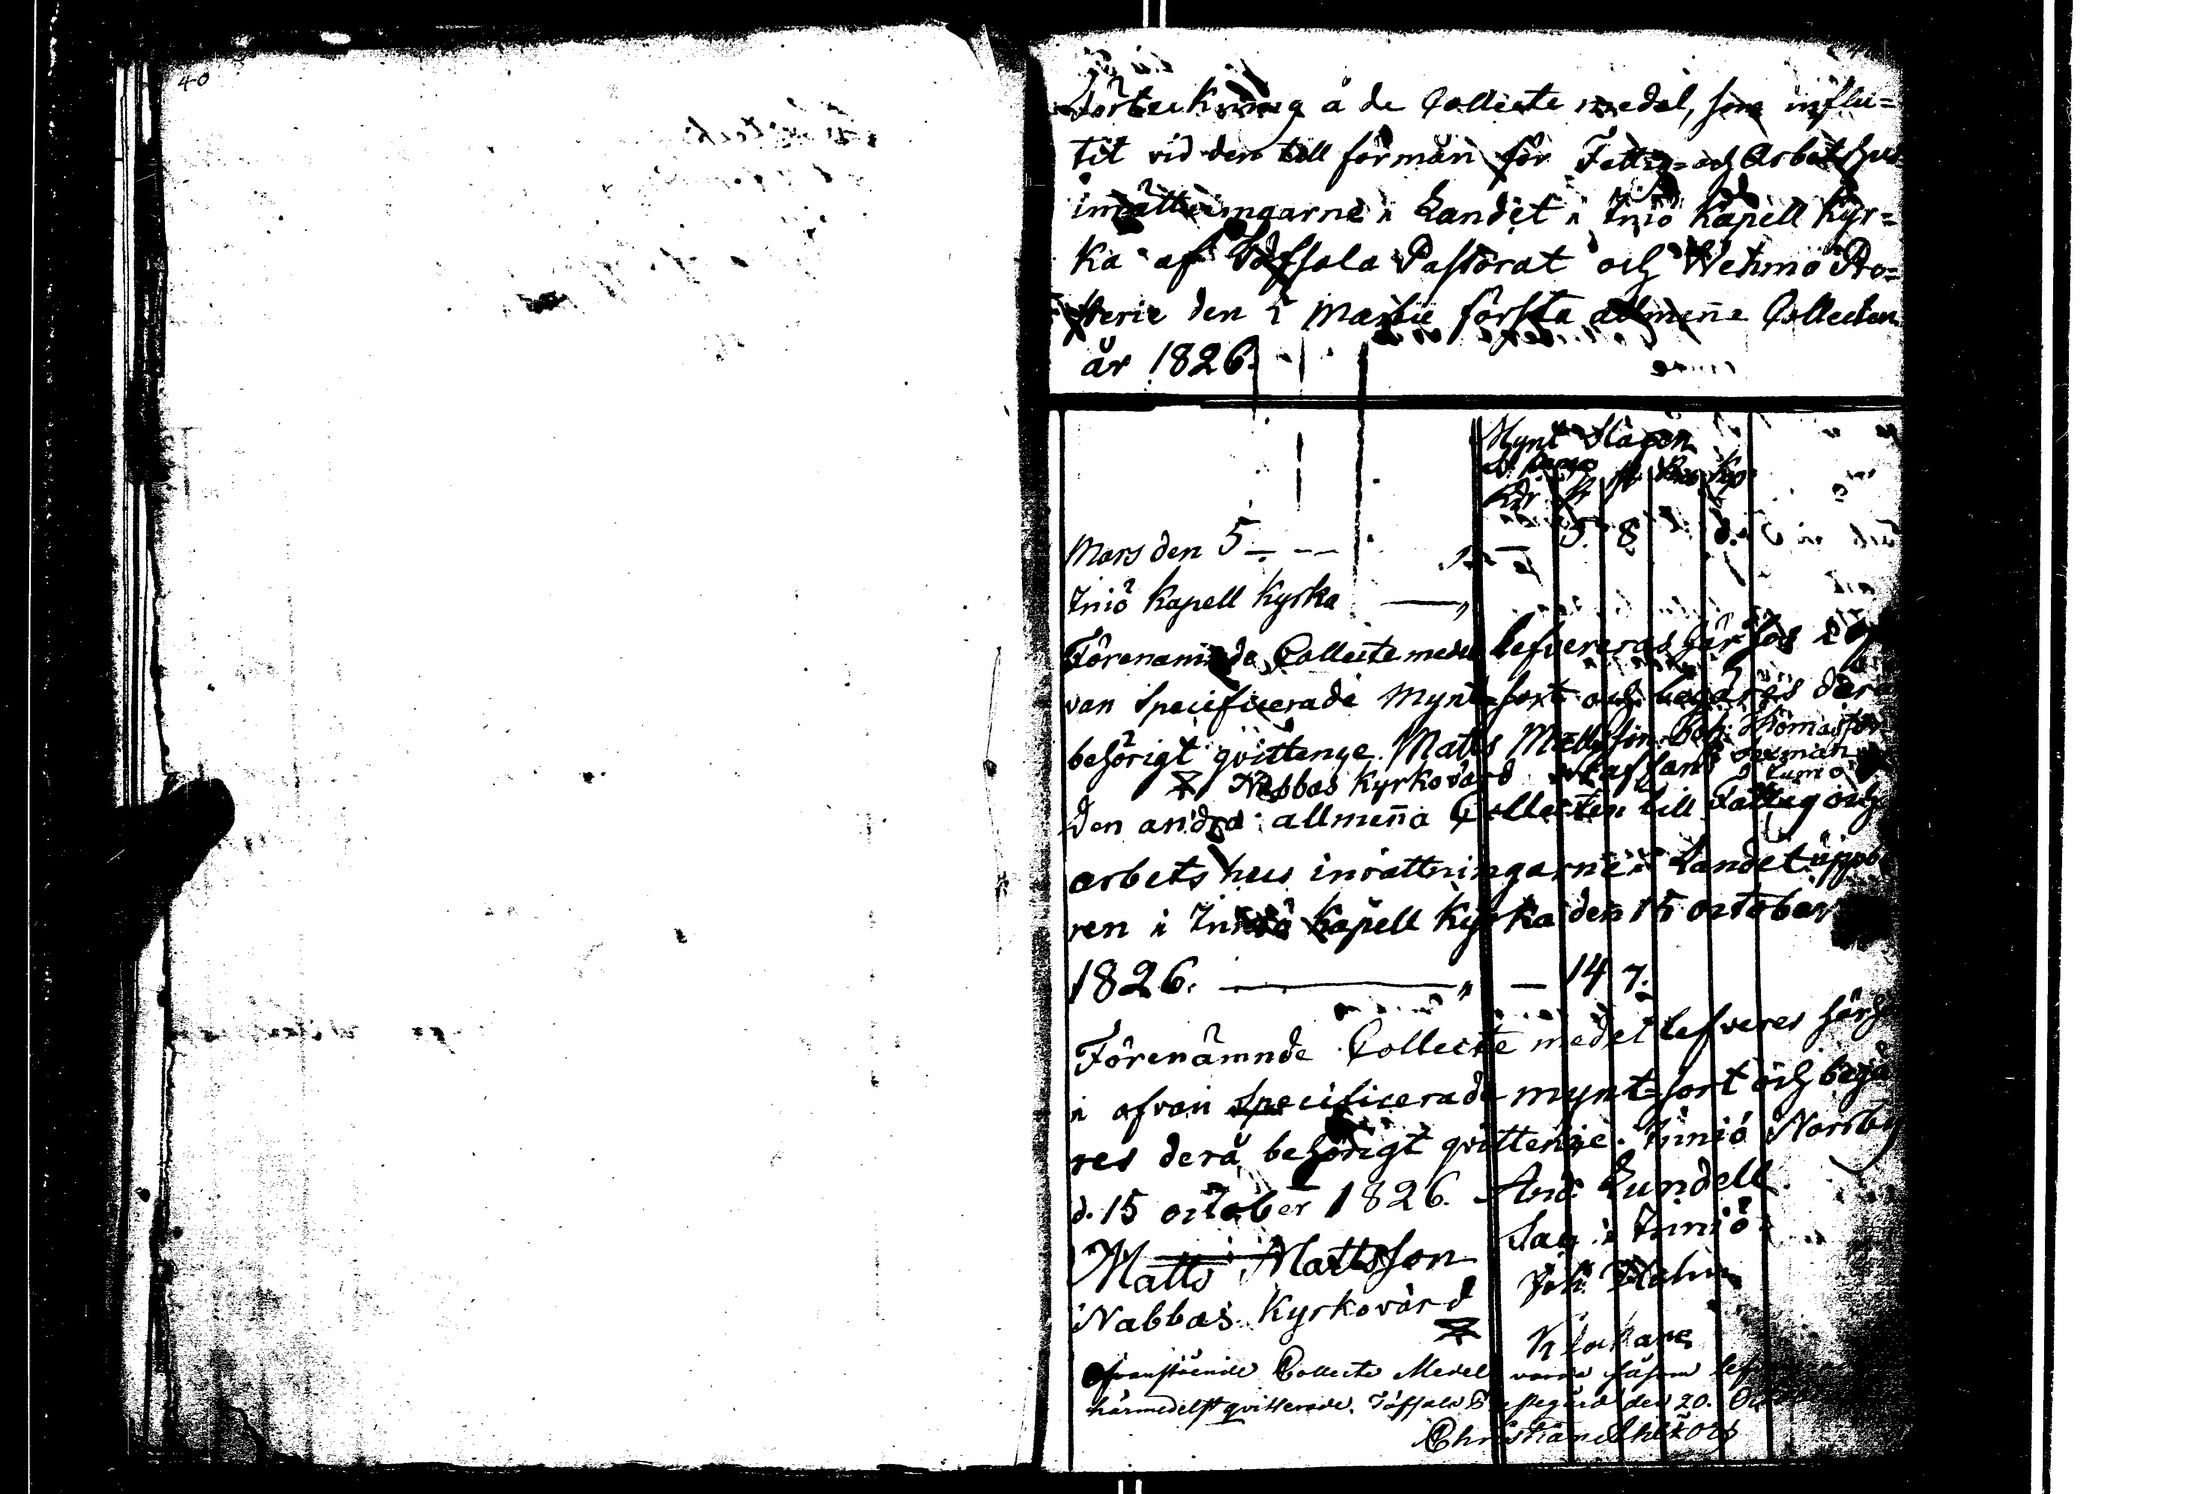 40
Förteckning å de Collecte medel, som influ=
tit vid den till förmån för Fattig= och Arbetshus
inrättningarne i Landet i Iniö Kapell Kyr=
ka af Töfsala Pastorat och Wehmo Pro=
sterie den 5 Martii första allmena Collecten
år 1826.
Mynt Slagen
Rdr
Mars den 5 — — — 5. 8
Iniö Kapell Kyrka —
Förenamnda Collecte medel lefvereras här hos i of
van specificerade Mynt sort och begäres dera
behörigt qvittenge. Matts Mattsson Joh: Thomasson
Nabbas Kyrkovärd
Den andra allmena Collecten till Fattig och
arbets hus inrättningarne i Landet uppb
ren i Iniö Kapell Kyrka den 15 october
1826. — „ — 14 7.
Förenämnde Collecte medel lefveres härh
i ofvan specificerade mynt=sort och begä
res derå behörigt qvittenge. Inniö Norrby
d. 15 october 1826. And: Lundell
Matts Mattsson Sac: i Inniö
Nabbas Kyrkovärd Joh: Holm
Klockare
Ofvanstående Collecte Medel varda såsom lef
härmedelst qvitterade. Töfsala Prestegård den 20. Oct
Christian Ahlfors